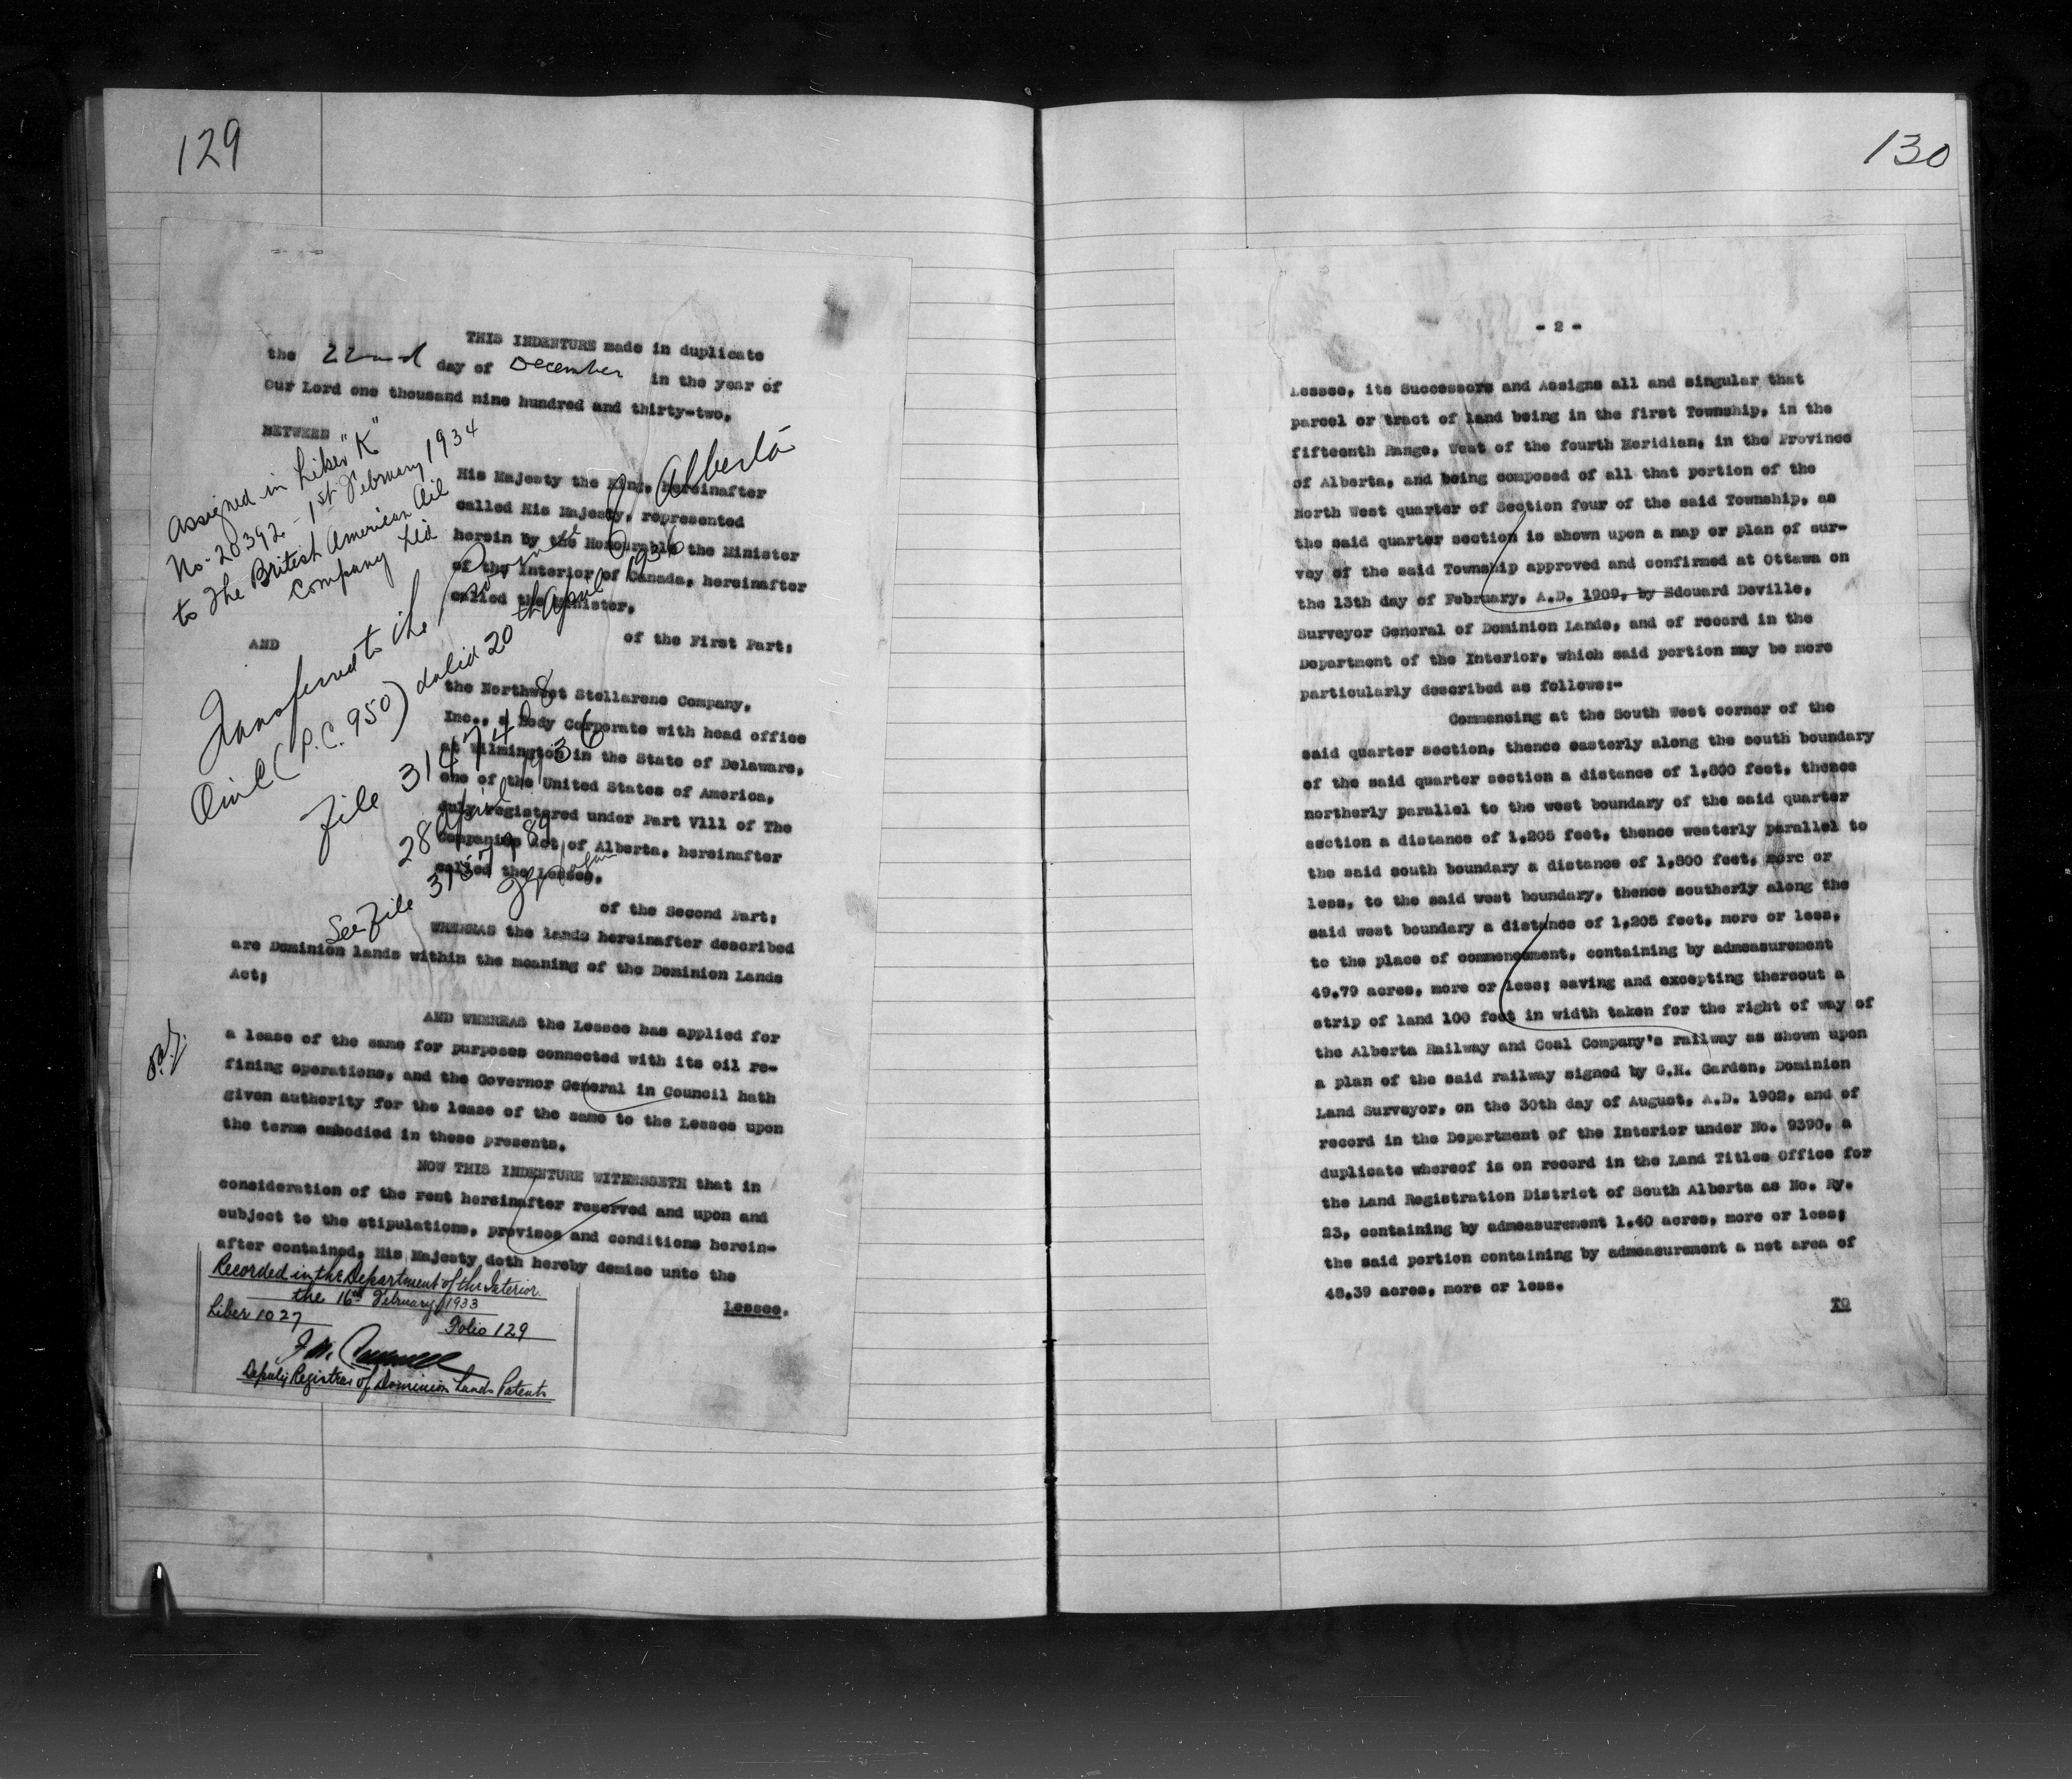 129
THIS INDENTURE made in duplicate
the 22nd day of December in the year of
Our Lord one thousand nine hundred and thirty-two.
BETWEEN
His Majesty the King, hereinafter
called His Majesty, represented
herein by the Honourable the Minister
of the Interior of Canada, hereinafter
called the Minister,
of the First Part;
AND
the Northwest Stellarene Company,
Inc., a Body Corporate with head office
at Wilmington in the State of Delaware,
one of the United States of America,
duly registered under Part V111 of The
Companies Act of Alberta, hereinafter
called the Lessee,
of the Second Part;
WHEREAS the lands hereinafter described
are Dominion lands within the meaning of the Dominion Lands
Act;
AND WHEREAS the Lessee has applied for
a lease of the same for purposes connected with its oil re-
fining operations, and the Governor General in Council hath
given authority for the lease of the same to the Lessee upon
the terms embodied in these presents.
NOW THIS INDENTURE WITNESSETH that in
consideration of the rent hereinafter reserved and upon and
subject to the stipulations, provisos and conditions herein-
after contained, His Majesty doth hereby demise unto the
Lessee,
Assigned in Liber "K"
No. 20392 - 1st February 1934
to The British American Oil
Company Ltd
Transferred to the Province of Alberta
(P.C. 950) dated 20th April 1936
File 3147408
28 April 1936
See File
Recorded in the Department of the Interior
the 16th February, 1933
Liber 1027 Folio 129
Deputy Registrar of Dominion Lands Patents
130
- 2 -
Lessee, its Successors and Assigns all and singular that
parcel or tract of land being in the first Township, in the
fifteenth Range, West of the fourth Meridian, in the Province
of Alberta, and being composed of all that portion of the
North West quarter of Section four of the said Township, as
the said quarter section is shown upon a map or plan of sur-
vey of the said Township approved and confirmed at Ottawa on
the 13th day of February, A.D. 1909, by Edouard Deville,
Surveyor General of Dominion Lands, and of record in the
Department of the Interior, which said portion may be more
particularly described as follows:-
Commencing at the South West corner of the
said quarter section, thence easterly along the south boundary
of the said quarter section a distance of 1,800 feet, thence
northerly parallel to the west boundary of the said quarter
section a distance of 1,205 feet, thence westerly parallel to
the said south boundary a distance of 1,800 feet, more or
less, to the said west boundary, thence southerly along the
said west boundary a distance of 1,205 feet, more or less,
to the place of commencement, containing by admeasurement
49.79 acres, more or less; saving and excepting thereout a
strip of land 100 feet in width taken for the right of way of
the Alberta Railway and Coal Company's railway as shown upon
a plan of the said railway signed by G.H. Garden, Dominion
Land Surveyor, on the 30th day of August, A.D. 1902, and of
record in the Department of the Interior under No. 9390, a
duplicate whereof is on record in the Land Titles Office for
the Land Registration District of South Alberta as No. Ry.
23, containing by admeasurement 1.40 acres, more or less;
the said portion containing by admeasurement a net area of
48.39 acres, more or less.
TO